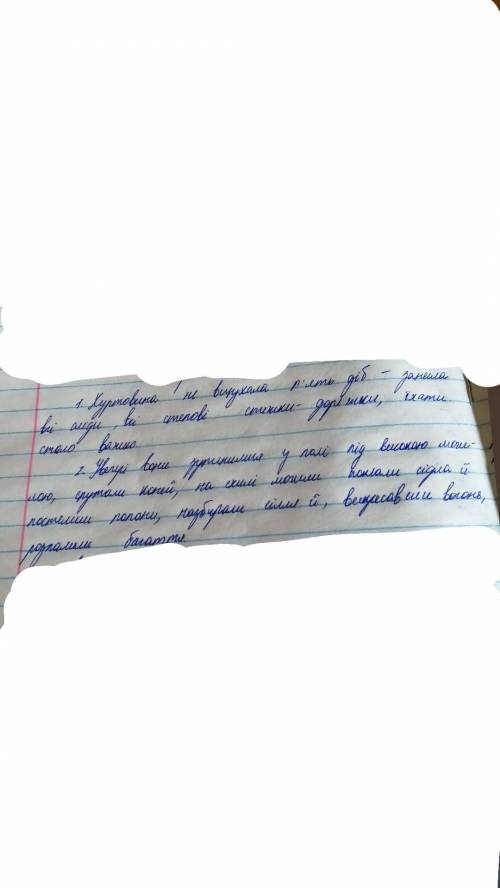 1. Хуртовина не вщухала п'ять діб – замела
всі сліди, всі степові стежки-доріжки, їхати
стало важко.
2. Увечері вони зупинилися у полі під високою моги-
лою, спутали коней, на схилі могили поклали сідла й
постелили попони, назбирали гілля й, викресавши вогонь,
розпалили багаття.